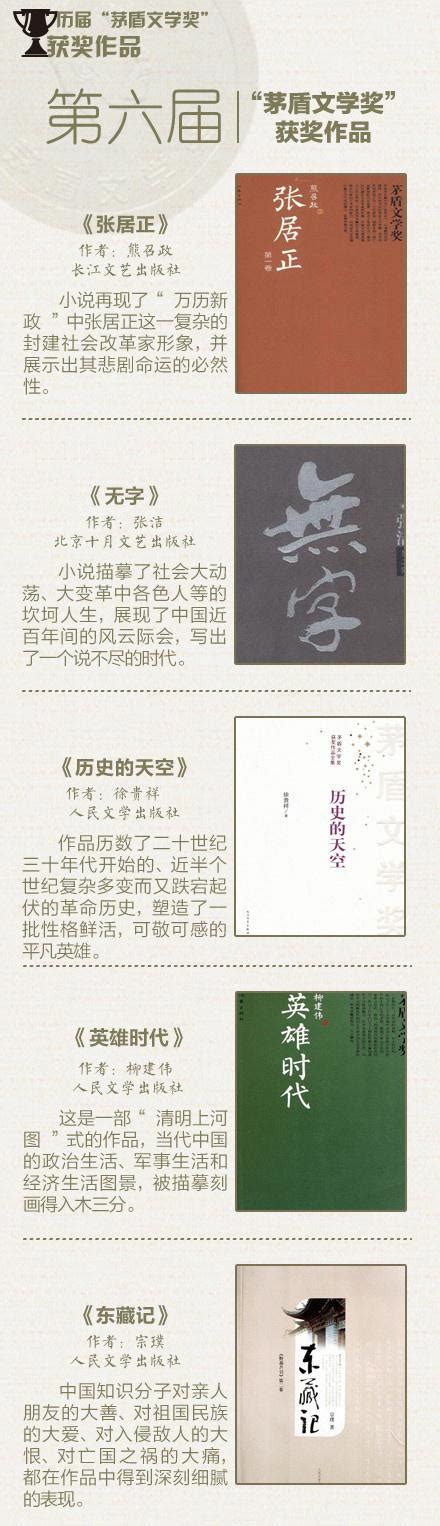 历届“茅盾文学奖”
获奖作品
第六届
“茅盾文学奖”
获奖作品
《张居正》
作者：熊召政
长江文艺出版社
小说再现了“ 万历新
政 ”中张居正这一复杂的
封建社会改革家形象，并
展示出其悲剧命运的必然
性。
茅盾文学奖
熊召政
张居正
第一卷
《无字》
作者：张洁
北京十月文艺出版社
小说描摹了社会大动
荡、大变革中各色人等的
坎坷人生，展现了中国近
百年间的风云际会，写出
了一个说不尽的时代。
無字
张洁
《历史的天空》
作者：徐贵祥
人民文学出版社
作品历数了二十世纪
三十年代开始的、近半个
世纪复杂多变而又跌宕起
伏的革命历史，塑造了一
批性格鲜活，可敬可感的
平凡英雄。
茅盾文学奖
茅盾文学奖
获奖作品全集
历史的天空
徐贵祥 著
《英雄时代》
作者：柳建伟
人民文学出版社
这是一部“ 清明上河
图 ”式的作品，当代中国
的政治生活、军事生活和
经济生活图景，被描摹刻
画得入木三分。
茅盾文学奖
柳建伟
英雄时代
《东藏记》
作者：宗璞
人民文学出版社
中国知识分子对亲人
朋友的大善、对祖国民族
的大爱、对入侵敌人的大
恨、对亡国之祸的大痛，
都在作品中得到深刻细腻
的表现。
东藏记
宗璞 著